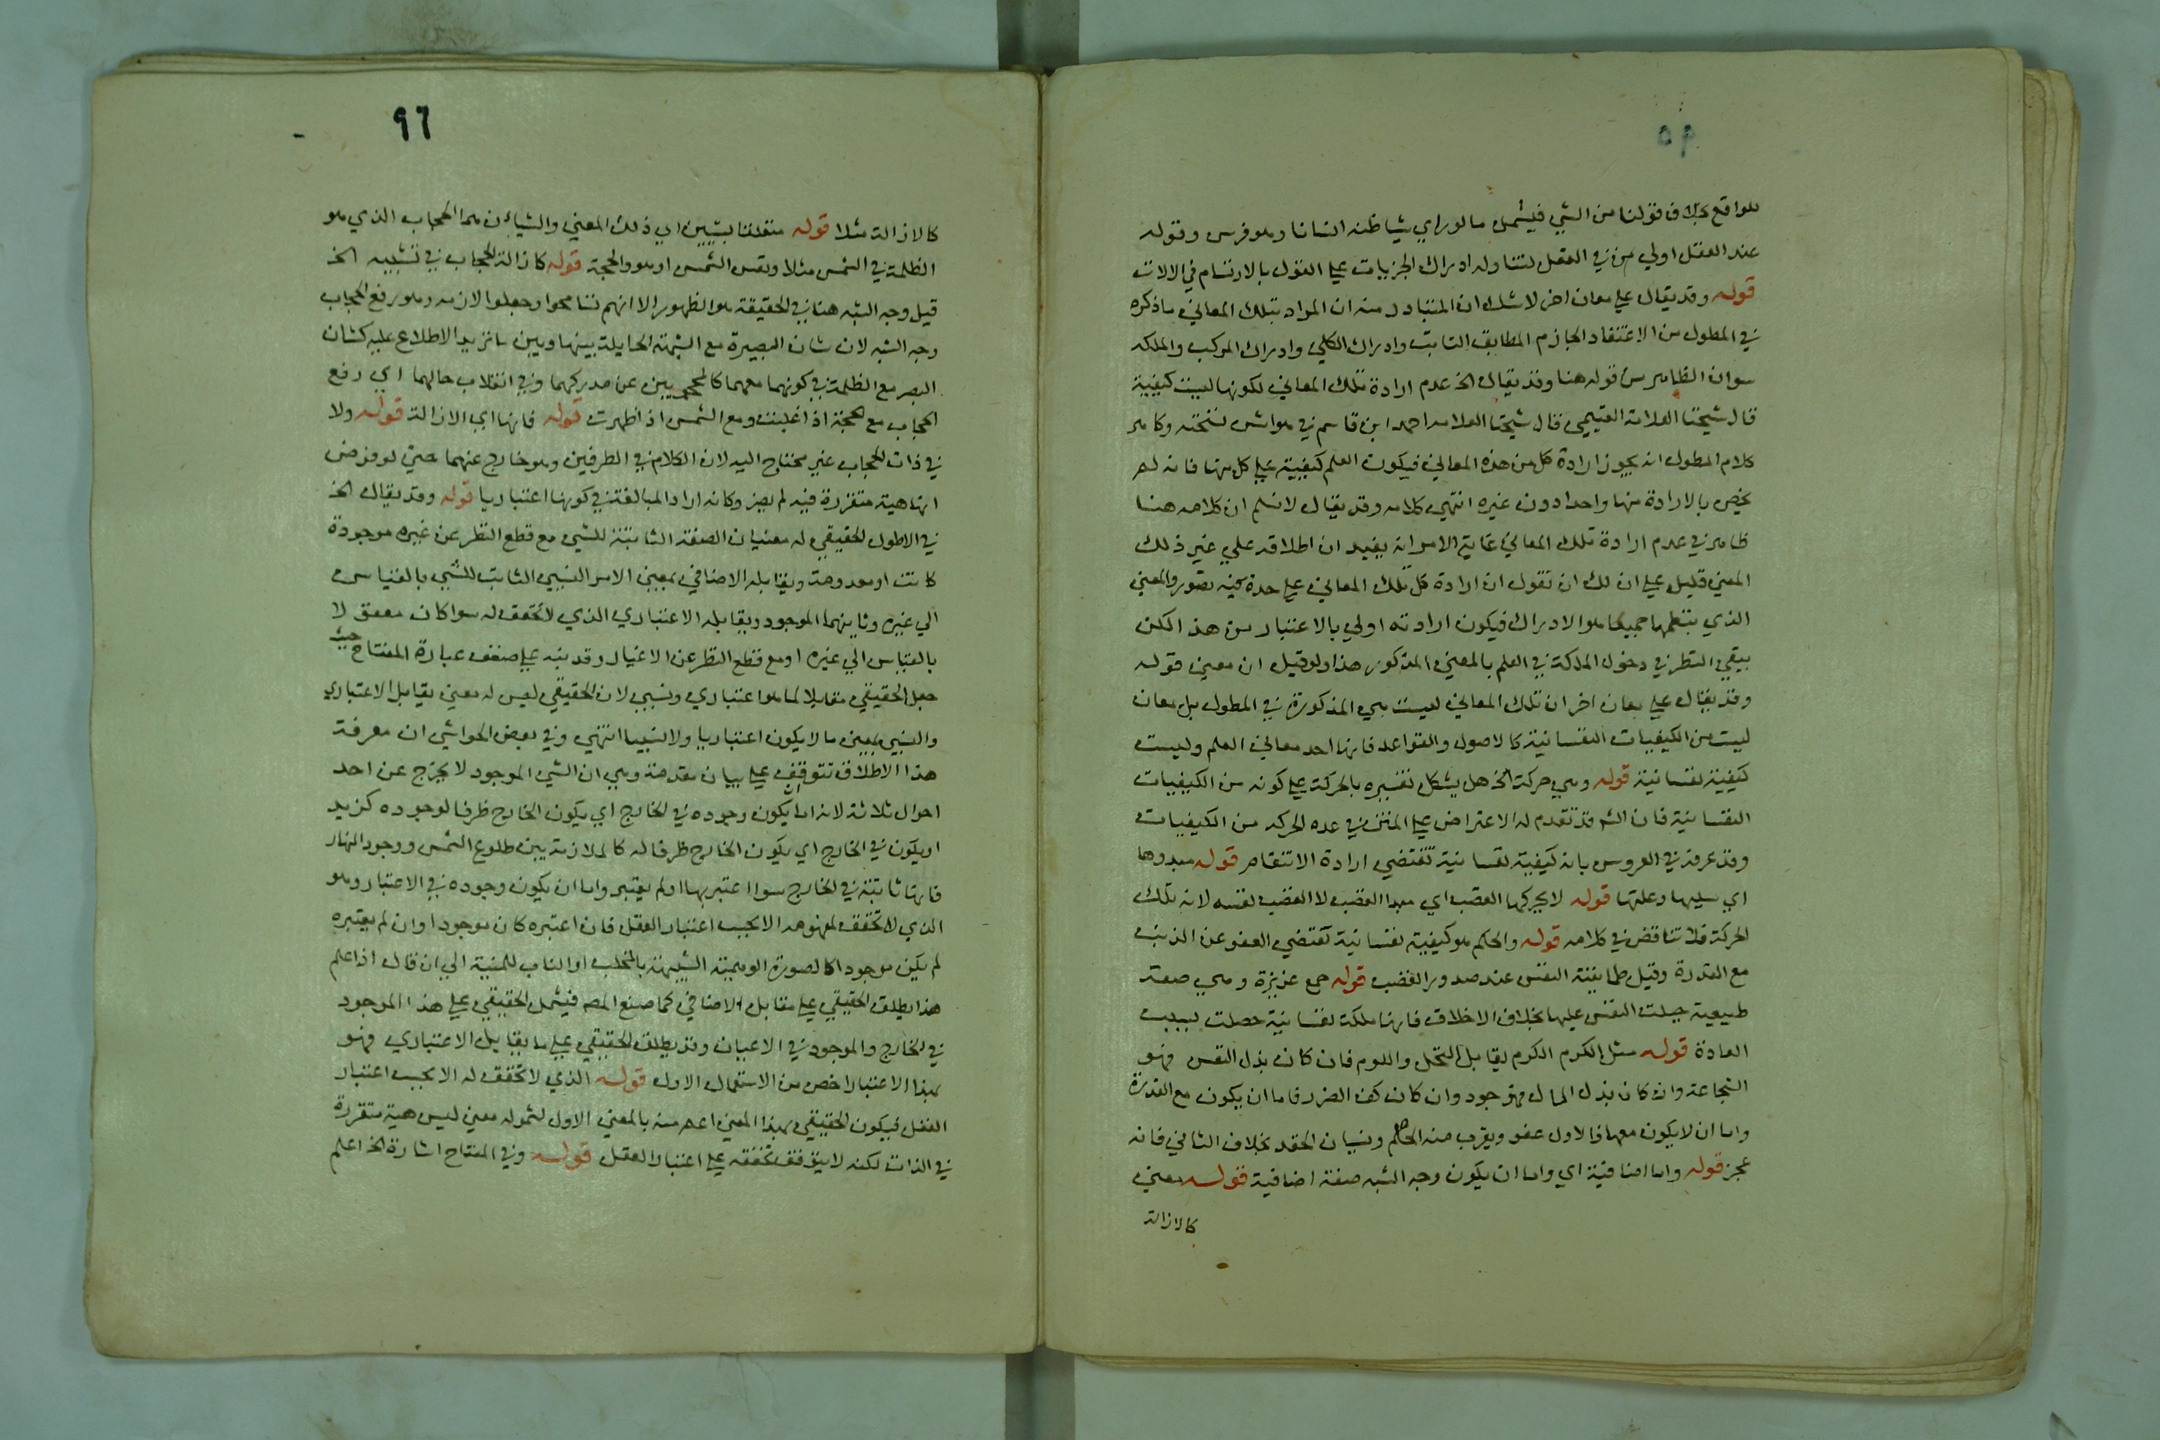 ٥٩
للواقع بخلاف قولنا من الشي فيشمل ما لو راي شيا ظنه انسانا وهو فرس وقوله
عند العقل اولي من في العقل لتناوله ادراك الجزييات علي القول بالارتسام في الالات
قوله وقد يقال علي معان اخر لا شك ان المتبادر منه ان المراد بتلك المعاني ما ذكره
في المطول من الاعتقاد الجازم المطابق الثابت وادراك الكلي وادراك المركب والملكه
سوان الظاهر من قوله هنا وقد يقال الخ عدم ارادة تلك المعاني لكونها ليست كيفية
قال شيخنا العلامة الغنيمي قال شيخنا العلامه احمد ابن قاسم في هوامش نسخته وكا هر
كلام المطول انه يجوز ارادة كل من هذه المعاني فيكون العلم كيفية علي كل منها فانه لم
يخص بالارادة منها واحدا دون غيره انتهي كلامه وقد يقال لا نسلم ان كلامه هنا
ظاهر في عدم ارادة تلك المعاني غاية الامر انه يفيد ان اطلاقه علي غير ذلك
المعني قليل علي ان لك ان تقول ان ارادة كل تلك المعاني علي حدة فيه تصور والمعني
الذي ينتظمها جميعا هو الادراك فيكون ارادته اولي بالاعتبار من هذا لكن
يبقي النظر في دخول الملكة في العلم بالمعني المذكور هذا ولو قيل ان معني قوله
وقد يقال علي معان اخر ان تلك المعاني ليست هي المذكورة في المطول بل معان
ليست من الكيفيات النفسانية كالاصول والقواعد فانها احد معاني العلم وليست
كيفية نفسانية قوله وهي حركة الخ هل يشكل تفسيره بالحركة علي كونه من الكيفيات
النفسانية فان الشه قد تقدم له الاعتراض علي المتن في عده الحركه من الكيفيات
وقد عرفه في العروس بانه كيفية نفسانية تقتضي ارادة الانتقام قوله مبدوها
اي سببها وعلتها قوله لا يحركها الغضب اي مبدا الغضب لا الغضب نفسه لانه تلك
الحركة فلا تناقض في كلامه قوله والحلم هو كيفية نفسانية تقتضي العفو عن الذنب
مع القدرة وقيل طمانينة النفس عند صدور الغضب قوله جمع غريزة وهي صفة
طبيعية جبلت النفس عليها بخلاف الاخلاق فانها ملكة نفسانية حصلت بسبب
العادة قوله مثل الكرم الكرم يقابل البخل واللوم فان كان بذل النفس فهو
الشجاعة وان كان بذل المال فهو جود وان كان كف الضرر فاما ان يكون مع القدرة
واما ان لا يكون معها فالاول عفو ويقرب منه الحلم ونسيان الحقد بخلاف الثاني فانه
عجز قوله واما اضافية اي واما ان يكون وجه الشبه صفة اضافية قوله معني
كالازالة
٩٦
كالازالة مثلا قوله متعلقا بشيين اي ذلك المعني والشيان هما الحجاب الذي هو
الظلمة في الشمس مثلا ونفس الشمس او هو والحجة قوله كازالة الحجاب في تشبيه الخ
قيل وجه الشبه هنا في الحقيقة هو الظهور الا انهم تسامحوا وجعلوا لازمه وهو رفع الحجاب
وجه الشبه لان شان البصيرة مع الشبهة الحايلة بينها وبين ما تريد الاطلاع عليه كشان
البصر مع الظلمة في كونهما معهما كالمحجوبين عن مدركهما وفي انقلاب حالهما اي رفع
الحجاب مع الحجة اذا غلبت ومع الشمس اذا ظهرت قوله فانها اي الازالة قوله ولا
في ذات الحجاب غير محتاج اليه لان الكلام في الطرفين وهو خارج عنهما حتي لو فرض
انها هية متقررة فيه لم يضر وكانه اراد المبالغة في كونها اعتباريا قوله وقد يقال الخ
في الاطول الحقيقي له معنيان الصفة الثابتة للشي مع قطع النظر عن غيره موجودة
كانت او معدومة ويقابله الاضافي بمعني الامر النسبي الثابت للشي بالقياس
الي غيره وثانيهما الموجود ويقابله الاعتباري الذي لا تحقق له سوا كان معقولا
بالقياس الي غيره او مع قطع النظر عن الاغيار وقد نبه علي ضعف عبارة المفتاح حيث
جعل الحقيقي مقابلا لما هو اعتباري ونسبي لان الحقيقي ليس له معني يقابل الاعتباري
والنسبي بمعني ما لا يكون اعتباريا ولا نسبيا انتهي وفي بعض الحواشي ان معرفة
هذا الاطلاق تتوقف علي بيان مقدمة وهي ان الشي الموجود لا يخرج عن احد
احوال ثلاثة لانه اما ان يكون وجوده في الخارج اي يكون الخارج ظرفا لوجوده كزيد
او يكون في الخارج اي يكون الخارج ظرفا له كالملازمة بين طلوع الشمس ووجود النهار
فانها ثابتة في الخارج سوا اعتبر بها او لم يعتبر واما ان يكون وجوده في الاعتبار وهو
الذي لا تحقق لمفهومه الا بحسب اعتبار العقل فان اعتبره كان موجودا وان لم يعتبره
لم يكن موجودا كالصورة الوهمية الشبيهة بالمخلب او الناب للمنية الي ان قال اذا علم
هذا يطلق الحقيقي علي مقابل الاضافي كما صنع المصه فيشمل الحقيقي علي هذا الموجود
في الخارج والموجود في الاعيان وقد يطلق الحقيقي علي ما يقابل الاعتباري فهو
بهذا الاعتبار اخص من الاستعمال الاول قوله الذي لا تحقق له الا بحسب اعتبار
العقل فيكون الحقيقي بهذا المعني اعم منه بالمعني الاول لشموله معني ليس هية متقررة
في الذات لكنه لا يتوقف تحققه علي اعتبار العقل قوله وفي المفتاح اشارة الخ اعلم